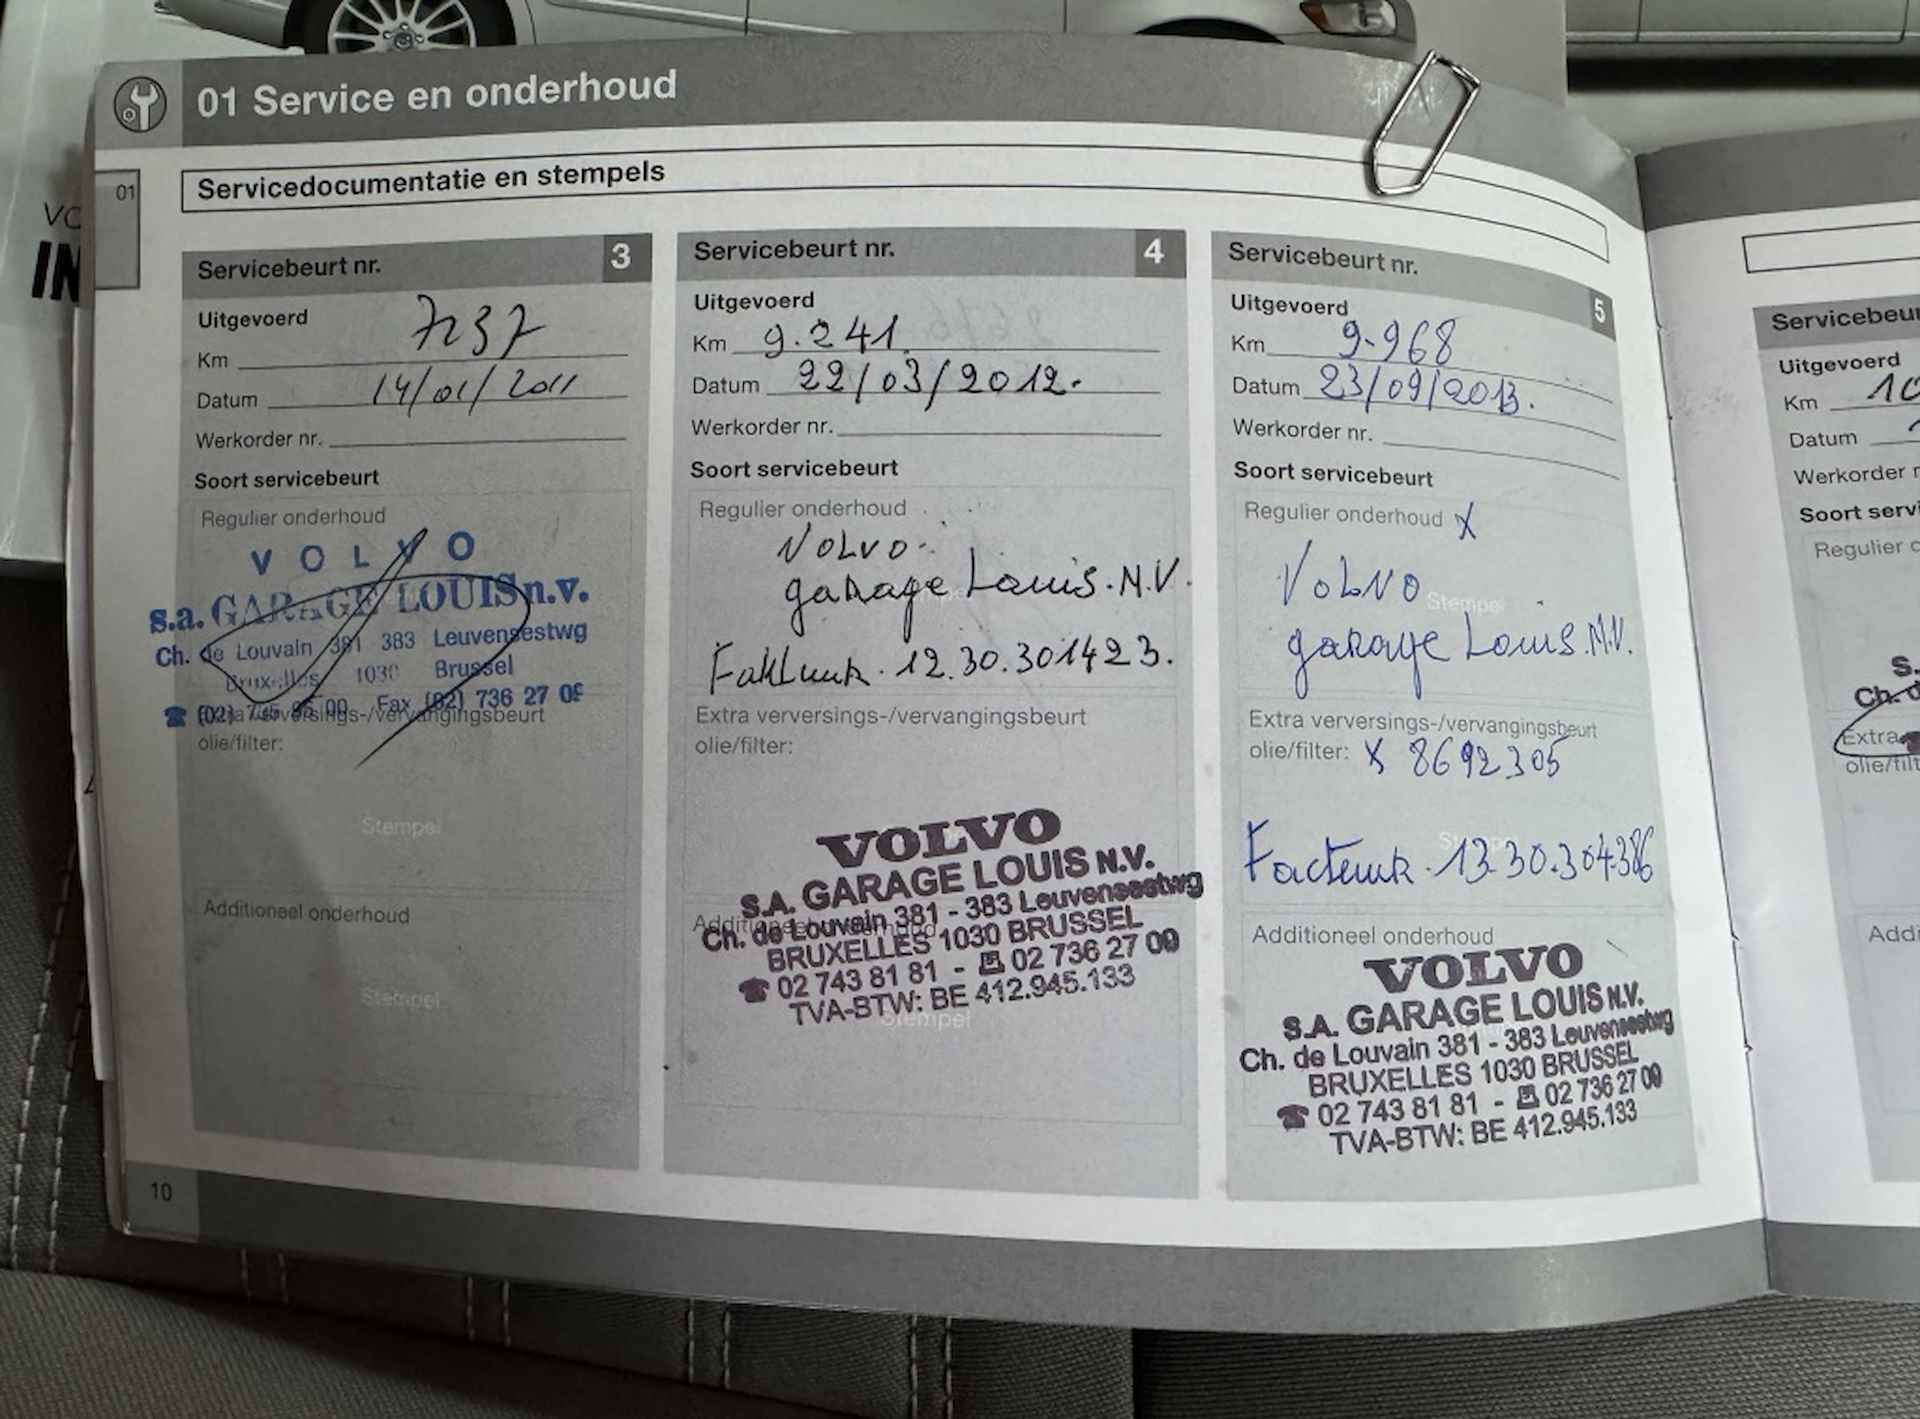 01 Service en onderhoud
01
Servicedocumentatie en stempels
VO
IN
Servicebeurt nr. 3
Uitgevoerd
Km 7237
Datum 14/01/2011
Werkorder nr.
Soort servicebeurt
Regulier onderhoud
VOLVO
s.a. GARAGE LOUIS n.v.
Ch. de Louvain 381 383 Leuvensestwg
Bruxelles 1030 Brussel
Fax (02) 736 27 09
Extra verversings-/vervangingsbeurt
olie/filter:
Stempel
Additioneel onderhoud
Stempel
Servicebeurt nr. 4
Uitgevoerd
Km 9.241
Datum 22/03/2012.
Werkorder nr.
Soort servicebeurt
Regulier onderhoud
Volvo
garage Louis. N.V.
12.30.301423.
Extra verversings-/vervangingsbeurt
olie/filter:
VOLVO
S.A. GARAGE LOUIS N.V.
Additioneel onderhoud
Ch. de Louvain 381 - 383 Leuvensestwg
BRUXELLES 1030 BRUSSEL
02 743 81 81 - 02 736 27 09
TVA-BTW: BE 412.945.133
Stempel
Servicebeurt nr. 5
Uitgevoerd
Km 9-968
Datum 23/09/2013.
Werkorder nr.
Soort servicebeurt
Regulier onderhoud X
Volvo
Stempel
garage Louis. N.V.
Extra verversings-/vervangingsbeurt
olie/filter: X 8692305
Facteur. 13.30.304386
Additioneel onderhoud
VOLVO
S.A. GARAGE LOUIS N.V.
Ch. de Louvain 381 - 383 Leuvensestwg
BRUXELLES 1030 BRUSSEL
02 743 81 81 - 02 736 27 09
TVA-BTW: BE 412.945.133
10
Servicebeu
Uitgevoerd
Km 10
Datum
Werkorder n
Soort servi
Regulier o
S.
Ch. d
Extra
olie/filt
Addi